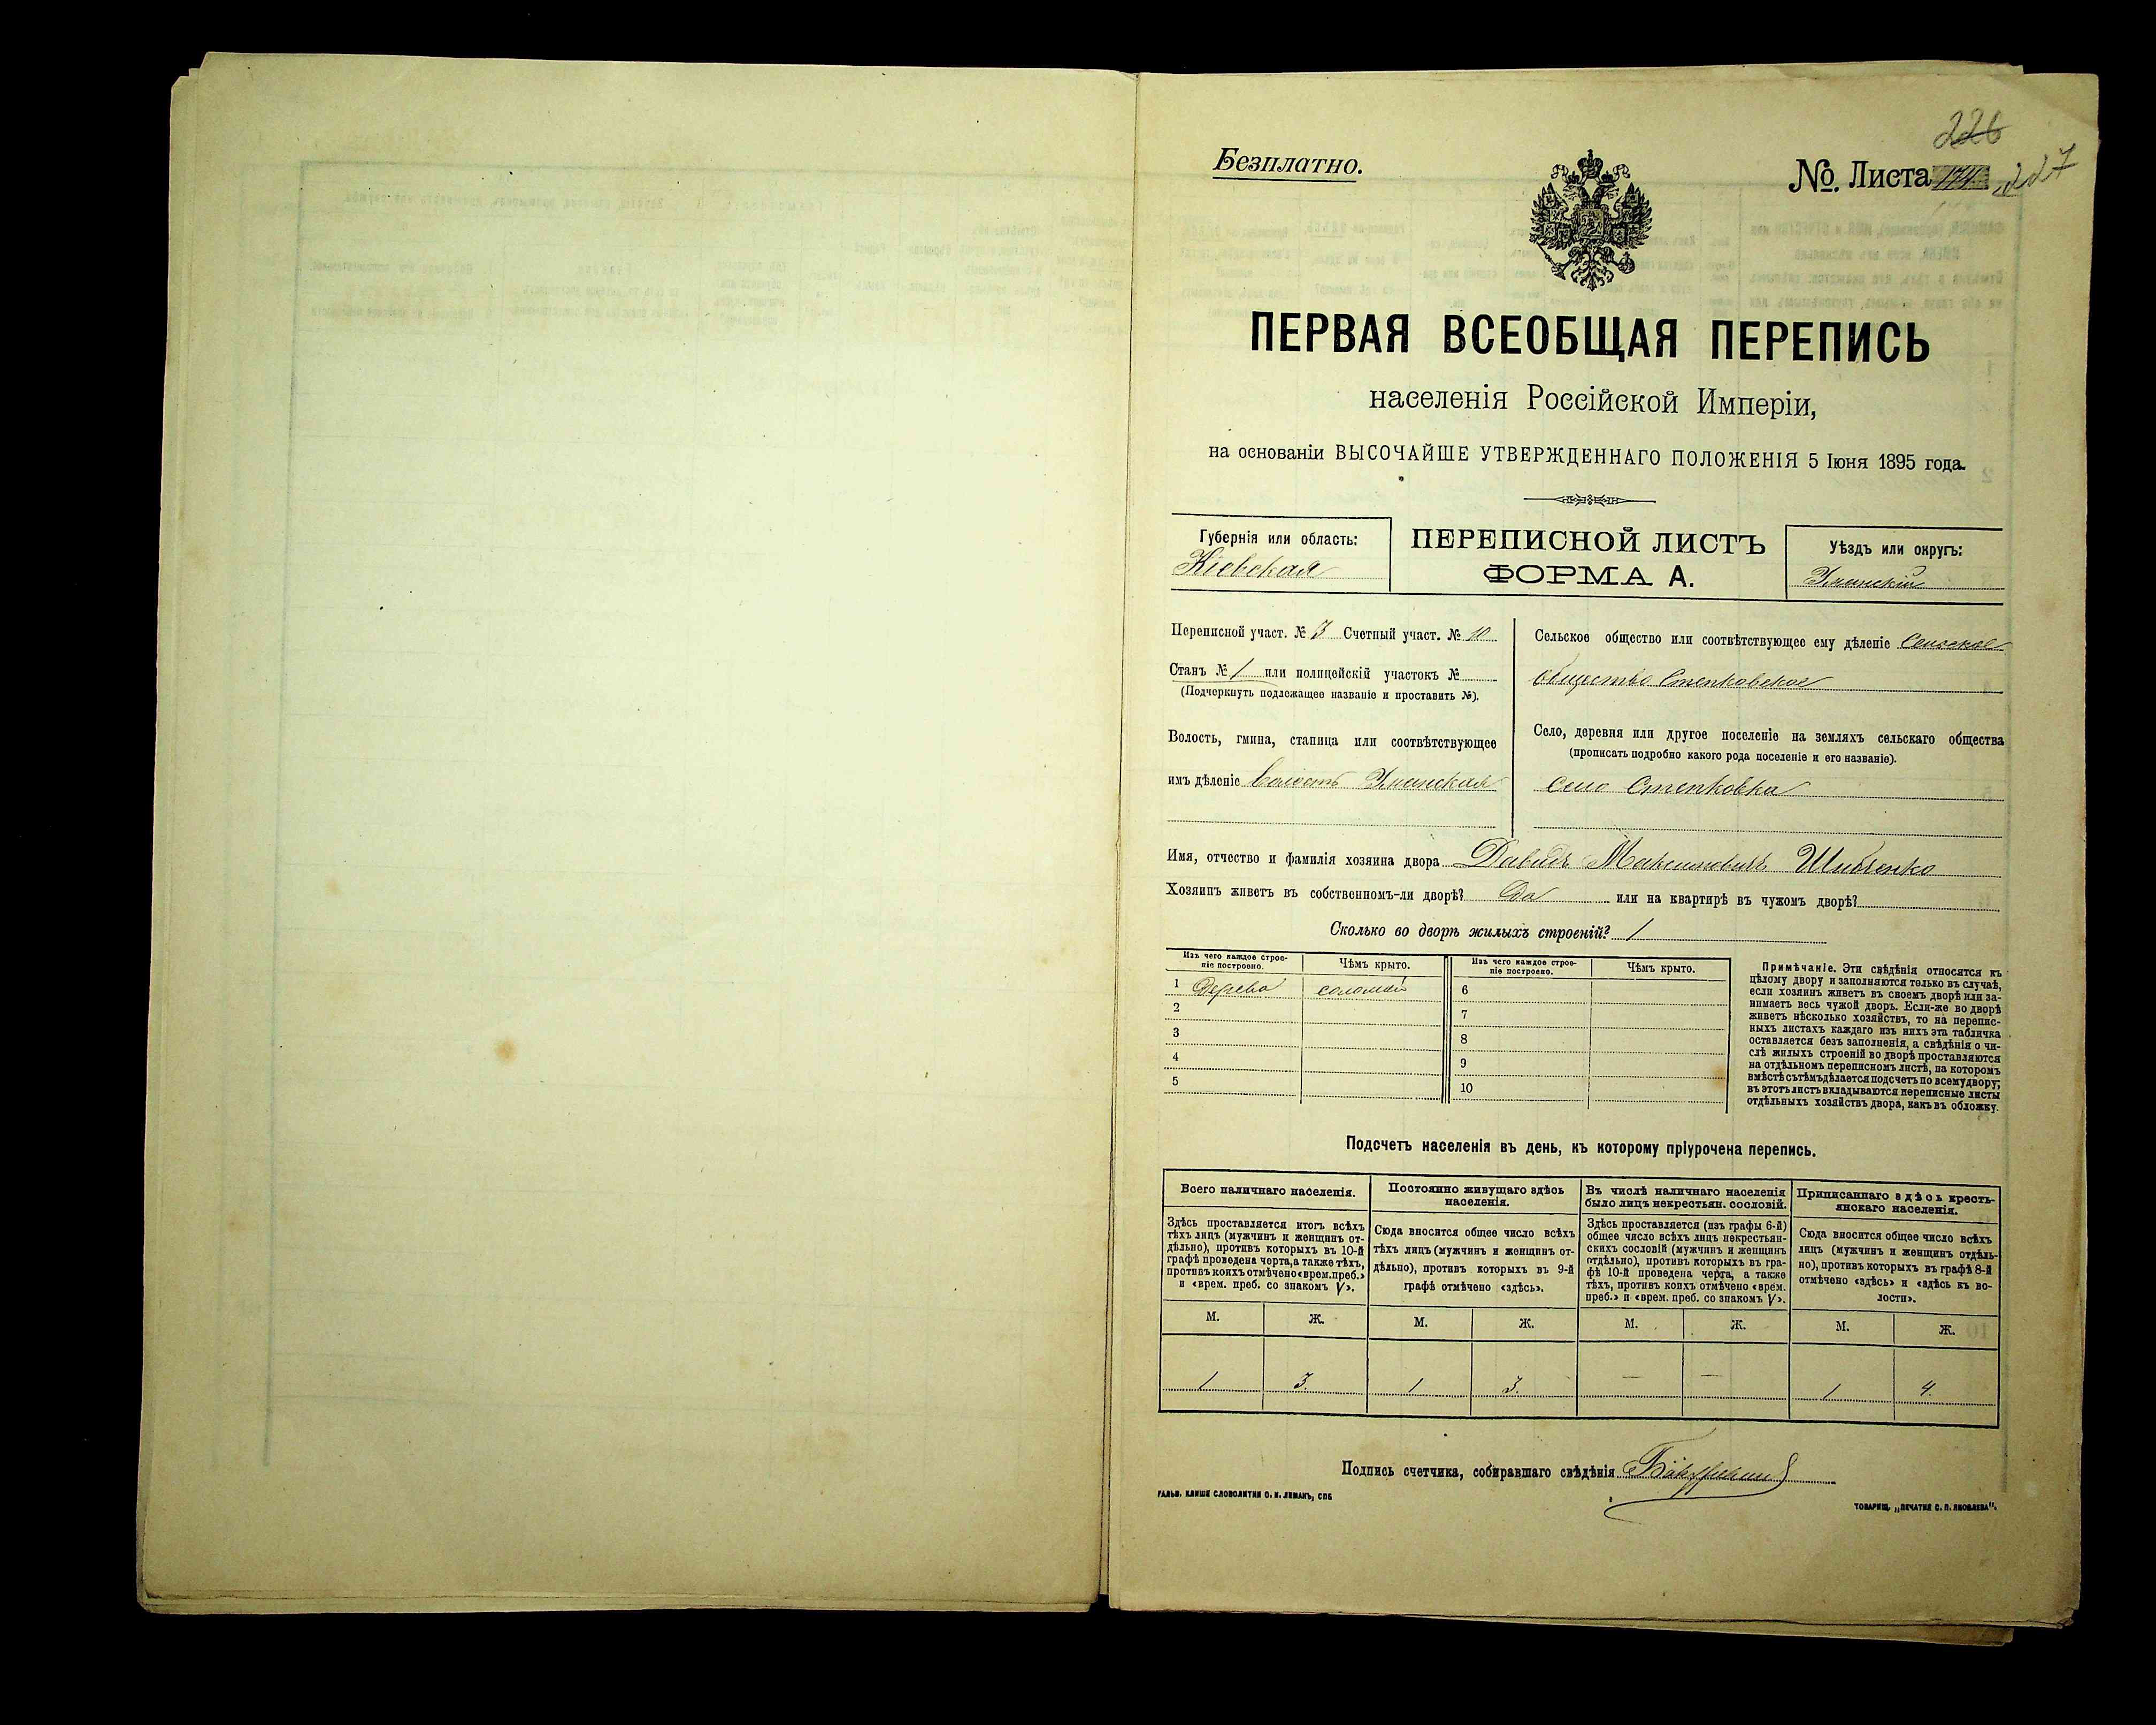 Безплатно.
226
№. Листа 174 227
ПЕРВАЯ ВСЕОБЩАЯ ПЕРЕПИСЬ
населенія Россійской Имперіи,
на основаніи ВЫСОЧАЙШЕ УТВЕРЖДЕННАГО ПОЛОЖЕНІЯ 5 Іюня 1895 года.
Губернія или область:
Кіевская
ПЕРЕПИСНОЙ ЛИСТЪ
ФОРМА А.
Уѣздъ или округъ:
Уманскій
Переписной участ. № 3 Счетный участ. № 10
Станъ № 1 или полицейскій участокъ №
(Подчеркнуть подлежащее названіе и проставить №).
Волость, гмина, станица или соотвѣтствующее
имъ дѣленіе волость Уманская
Сельское общество или соотвѣтствующее ему дѣленіе Сельское
общество Степковское
Село, деревня или другое поселеніе на земляхъ сельскаго общества
(прописать подробно какого рода поселеніе и его названіе).
село Степковка
Имя, отчество и фамилія хозяина двора Давидъ Максимовичъ
Хозяинъ живетъ въ собственномъ-ли дворѣ? Да или на квартирѣ въ чужомъ дворѣ?
Сколько во дворѣ жилыхъ строеній? 1
Изъ чего каждое строе-
ніе построено.
Чѣмъ крыто.
Изъ чего каждое строе-
ніе построено.
Чѣмъ крыто.
1 Дерева соломой 6
2 7
3 8
4 9
5 10
Примѣчаніе. Эти свѣдѣнія относятся къ
цѣлому двору и заполняются только въ случаѣ,
если хозяинъ живетъ въ своемъ дворѣ или за-
нимаетъ весь чужой дворъ. Если-же во дворѣ
живетъ нѣсколько хозяйствъ, то на перепис-
ныхъ листахъ каждаго изъ нихъ эта табличка
оставляется безъ заполненія, а свѣдѣнія о чи-
слѣ жилыхъ строеній во дворѣ проставляются
на отдѣльномъ переписномъ листѣ, на которомъ
вмѣстѣ съ тѣмъ дѣлается подсчетъ по всему двору;
въ этотъ листъ вкладываются переписные листы
отдѣльныхъ хозяйствъ двора, какъ въ обложку.
Подсчетъ населенія въ день, къ которому пріурочена перепись.
Всего наличнаго населенія.
Здѣсь проставляется итогъ всѣхъ
тѣхъ лицъ (мужчинъ и женщинъ от-
дѣльно), противъ которыхъ въ 10-й
графѣ проведена черта, а также тѣхъ,
противъ коихъ отмѣчено «врем. преб.»
и «врем. преб. со знакомъ V».
Постоянно живущаго здѣсь
населенія.
Сюда вносится общее число всѣхъ
тѣхъ лицъ (мужчинъ и женщинъ от-
дѣльно), противъ которыхъ въ 9-й
графѣ отмѣчено «здѣсь».
Въ числѣ наличнаго населенія
было лицъ некрестьян. сословій.
Здѣсь проставляется (изъ графы 6-й)
общее число всѣхъ лицъ некрестьян-
скихъ сословій (мужчинъ и женщинъ
отдѣльно), противъ которыхъ въ гра-
фѣ 10-й проведена черта, а также
тѣхъ, противъ коихъ отмѣчено «врем.
преб.» и «врем. преб. со знакомъ V».
Приписаннаго здѣсь кресть-
янскаго населенія.
Сюда вносится общее число всѣхъ
лицъ (мужчинъ и женщинъ отдѣль-
но), противъ которыхъ въ графѣ 8-й
отмѣчено «здѣсь» и «здѣсь къ во-
лости».
М. Ж. М. Ж. М. Ж. М. Ж.
1 3. 1 3. — — 1 4.
Подпись счетчика, собиравшаго свѣдѣнія
ГАЛЬВ. КЛИШЕ СЛОВОЛИТНИ О. И. ЛЕМАНЪ, СПБ
ТОВАРИЩ. „ПЕЧАТНЯ С. П. ЯКОВЛЕВА".